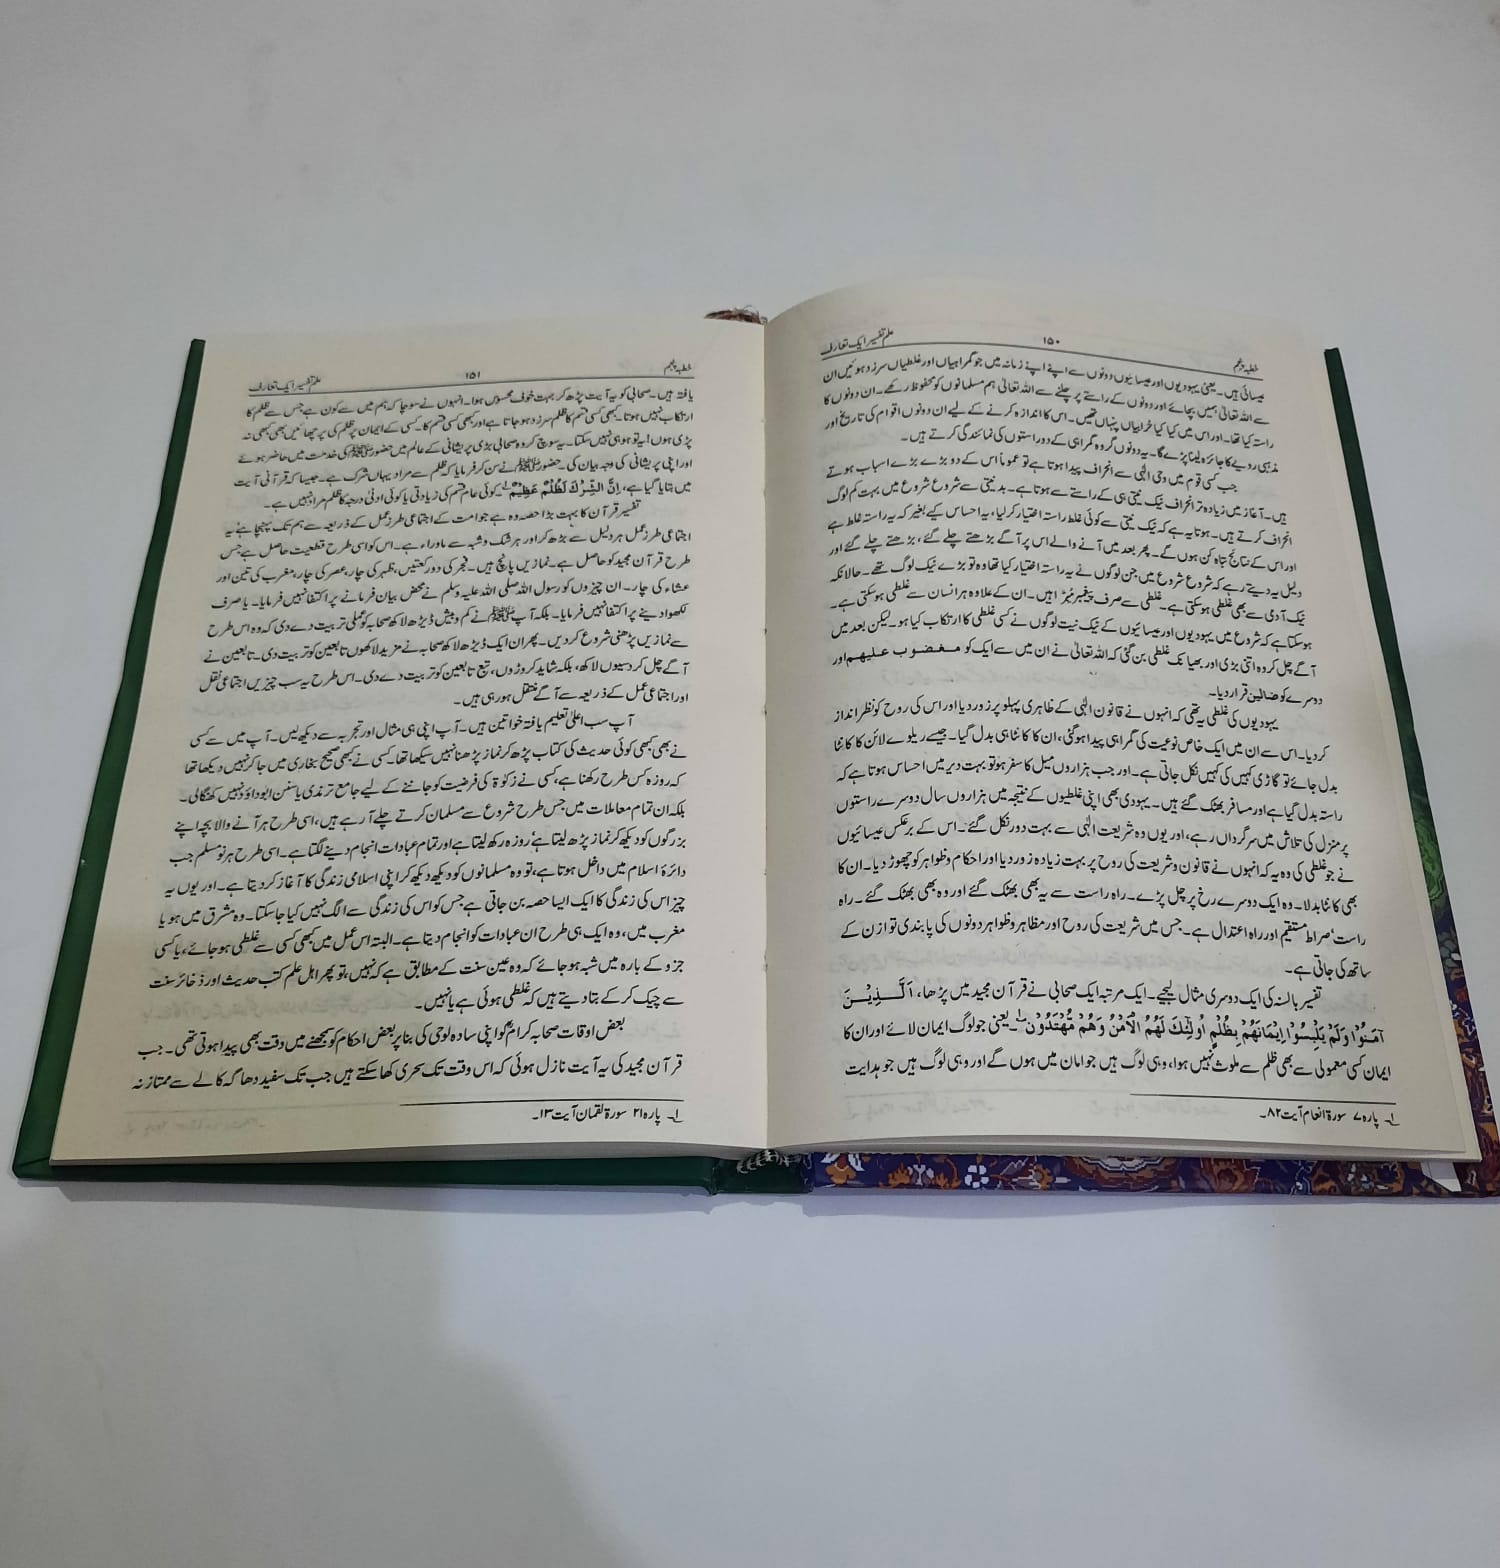 علم تفسیر ایک تعارف ۱۵۰ خطبہ پنجم
عیسائی ہیں۔ یعنی یہودیوں اور عیسائیوں دونوں سے اپنے اپنے زمانہ میں جو گمراہیاں اور غلطیاں سرزد ہوئیں ان
سے اللہ تعالیٰ ہمیں بچائے اور دونوں کے راستے پر چلنے سے اللہ تعالیٰ ہم مسلمانوں کو محفوظ رکھے۔ ان دونوں کا
راستہ کیا تھا۔ اور اس میں کیا کیا خرابیاں پنہاں تھیں۔ اس کا اندازہ کرنے کے لیے ان دونوں اقوام کی تاریخ اور
مذہبی رویے کا جائزہ لینا پڑے گا۔ یہ دونوں گروہ گمراہی کے دو راستوں کی نمائندگی کرتے ہیں۔
جب کسی قوم میں وحی الٰہی سے انحراف پیدا ہوتا ہے تو عموماً اس کے دو بڑے بڑے اسباب ہوتے
ہیں۔ آغاز میں زیادہ تر انحراف نیک نیتی ہی کے راستے سے ہوتا ہے۔ بدنیتی سے شروع شروع میں بہت کم لوگ
انحراف کرتے ہیں۔ ہوتا یہ ہے کہ نیک نیتی سے کوئی غلط راستہ اختیار کر لیا، یہ احساس کیے بغیر کہ یہ راستہ غلط ہے
اور اس کے نتائج تباہ کن ہوں گے۔ پھر بعد میں آنے والے اس پر آگے بڑھتے چلے گئے، بڑھتے چلے گئے اور
دلیل یہ دیتے رہے کہ شروع شروع میں جن لوگوں نے یہ راستہ اختیار کیا تھا وہ تو بڑے نیک لوگ تھے۔ حالانکہ
نیک آدمی سے بھی غلطی ہو سکتی ہے۔ غلطی سے صرف پیغمبر مُبَرّا ہیں۔ ان کے علاوہ ہر انسان سے غلطی ہو سکتی ہے۔
ہو سکتا ہے کہ شروع میں یہودیوں اور عیسائیوں کے نیک نیت لوگوں نے کسی غلطی کا ارتکاب کیا ہو۔ لیکن بعد میں
آگے چل کر وہ اتنی بڑی اور بھیانک غلطی بن گئی کہ اللہ تعالیٰ نے ان میں سے ایک کو مغضوب علیہم اور
دوسرے کو ضالین قرار دیا۔
یہودیوں کی غلطی یہ تھی کہ انہوں نے قانون الٰہی کے ظاہری پہلو پر زور دیا اور اس کی روح کو نظر انداز
کر دیا۔ اس سے ان میں ایک خاص نوعیت کی گمراہی پیدا ہو گئی، ان کا کانٹا ہی بدل گیا۔ جیسے ریلوے لائن کا کانٹا
بدل جائے تو گاڑی کہیں کی کہیں نکل جاتی ہے۔ اور جب ہزاروں میل کا سفر ہو تو بہت دیر میں احساس ہوتا ہے کہ
راستہ بدل گیا ہے اور مسافر بھٹک گئے ہیں۔ یہودی بھی اپنی غلطیوں کے نتیجہ میں ہزاروں سال دوسرے راستوں
پر منزل کی تلاش میں سرگرداں رہے، اور یوں وہ شریعت الٰہی سے بہت دور نکل گئے۔ اس کے برعکس عیسائیوں
نے جو غلطی کی وہ یہ کہ انہوں نے قانون و شریعت کی روح پر بہت زیادہ زور دیا اور احکام و ظواہر کو چھوڑ دیا۔ ان کا
بھی کانٹا بدلا۔ وہ ایک دوسرے رخ پر چل پڑے۔ راہ راست سے یہ بھی بھٹک گئے اور وہ بھی بھٹک گئے۔ راہ
راست، صراط مستقیم اور راہ اعتدال ہے۔ جس میں شریعت کی روح اور مظاہر و ظواہر دونوں کی پابندی توازن کے
ساتھ کی جاتی ہے۔
تفسیر بالسنہ کی ایک دوسری مثال لیجیے۔ ایک مرتبہ ایک صحابی نے قرآن مجید میں پڑھا، اَلَّذِیْنَ
آمَنُوْا وَلَمْ یَلْبِسُوْا اِیْمَانَهُمْ بِظُلْمٍ اُولٰٓئِكَ لَهُمُ الْاَمْنُ وَهُمْ مُّهْتَدُوْنَ۱۔ یعنی جو لوگ ایمان لائے اور ان کا
ایمان کسی معمولی سے بھی ظلم سے ملوث نہیں ہوا، وہی لوگ ہیں جو امان میں ہوں گے اور وہی لوگ ہیں جو ہدایت
۱۔ پارہ ۷ سورۃ انعام آیت ۸۲۔
علم تفسیر ایک تعارف ۱۵۱ خطبہ پنجم
یافتہ ہیں۔ صحابی کو یہ آیت پڑھ کر بہت خوف محسوس ہوا۔ انہوں نے سوچا کہ ہم میں سے کون ہے جس سے ظلم کا
ارتکاب نہیں ہوتا۔ کبھی کسی قسم کا ظلم سرزد ہو جاتا ہے اور کبھی کسی قسم کا۔ کسی کے ایمان پر ظلم کی پرچھائیں بھی کبھی نہ
پڑی ہوں ایسا تو ہو ہی نہیں سکتا۔ یہ سوچ کر وہ صحابی بڑی پریشانی کے عالم میں حضور ﷺ کی خدمت میں حاضر ہوئے
اور اپنی پریشانی کی وجہ بیان کی۔ حضور ﷺ نے سن کر فرمایا کہ ظلم سے مراد یہاں شرک ہے۔ جیسا کہ قرآنی آیت
میں بتایا گیا ہے، اِنَّ الشِّرْكَ لَظُلْمٌ عَظِیْمٌ۱۔ کوئی عام قسم کی زیادتی یا کوئی ادنیٰ درجہ کا ظلم مراد نہیں ہے۔
تفسیر قرآن کا بہت بڑا حصہ وہ ہے جو امت کے اجتماعی طرز عمل کے ذریعہ سے ہم تک پہنچا ہے یہ
اجتماعی طرز عمل ہر دلیل سے بڑھ کر اور ہر شک و شبہ سے ماوراء ہے۔ اس کو اسی طرح قطعیت حاصل ہے جس
طرح قرآن مجید کو حاصل ہے۔ نمازیں پانچ ہیں۔ فجر کی دو رکعتیں، ظہر کی چار، عصر کی چار، مغرب کی تین اور
عشاء کی چار۔ ان چیزوں کو رسول اللہ صلی اللہ علیہ وسلم نے محض بیان فرمانے پر اکتفا نہیں فرمایا۔ یا صرف
لکھوا دینے پر اکتفا نہیں فرمایا۔ بلکہ آپ ﷺ نے کم و بیش ڈیڑھ لاکھ صحابہ کو عملی تربیت دے دی کہ وہ اس طرح
سے نمازیں پڑھنی شروع کر دیں۔ پھر ان ایک ڈیڑھ لاکھ صحابہ نے مزید لاکھوں تابعین کو تربیت دی۔ تابعین نے
آگے چل کر دسیوں لاکھ، بلکہ شاید کروڑوں، تبع تابعین کو تربیت دے دی۔ اس طرح یہ سب چیزیں اجتماعی نقل
اور اجتماعی عمل کے ذریعہ سے آگے منتقل ہو رہی ہیں۔
آپ سب اعلیٰ تعلیم یافتہ خواتین ہیں۔ آپ اپنی ہی مثال اور تجربہ سے دیکھ لیں۔ آپ میں سے کسی
نے بھی کبھی کوئی حدیث کی کتاب پڑھ کر نماز پڑھنا نہیں سیکھا تھا۔ کسی نے کبھی صحیح بخاری میں جا کر نہیں دیکھا تھا
کہ روزہ کس طرح رکھنا ہے، کسی نے زکوۃ کی فرضیت کو جاننے کے لیے جامع ترمذی یا سنن ابوداؤد نہیں کھنگالی۔
بلکہ ان تمام معاملات میں جس طرح شروع سے مسلمان کرتے چلے آ رہے ہیں، اسی طرح ہر آنے والا بچہ اپنے
بزرگوں کو دیکھ کر نماز پڑھ لیتا ہے روزہ رکھ لیتا ہے اور تمام عبادات انجام دینے لگتا ہے۔ اسی طرح ہر نو مسلم جب
دائرۂ اسلام میں داخل ہوتا ہے، تو وہ مسلمانوں کو دیکھ دیکھ کر اپنی اسلامی زندگی کا آغاز کر دیتا ہے۔ اور یوں یہ
چیز اس کی زندگی کا ایک ایسا حصہ بن جاتی ہے جس کو اس کی زندگی سے الگ نہیں کیا جا سکتا۔ وہ مشرق میں ہو یا
مغرب میں، وہ ایک ہی طرح ان عبادات کو انجام دیتا ہے۔ البتہ اس عمل میں کبھی کسی سے غلطی ہو جائے، یا کسی
جزو کے بارہ میں شبہ ہو جائے کہ وہ عین سنت کے مطابق ہے کہ نہیں، تو پھر اہل علم کتب حدیث اور ذخائر سنت
سے چیک کر کے بتا دیتے ہیں کہ غلطی ہوئی ہے یا نہیں۔
بعض اوقات صحابہ کرامؓ کو اپنی سادہ لوحی کی بنا پر بعض احکام کو سمجھنے میں وقت بھی پیدا ہوتی تھی۔ جب
قرآن مجید کی یہ آیت نازل ہوئی کہ اس وقت تک سحری کھا سکتے ہیں جب تک سفید دھاگہ کالے سے ممتاز نہ
۱۔ پارہ ۲۱ سورۃ لقمان آیت ۱۳۔